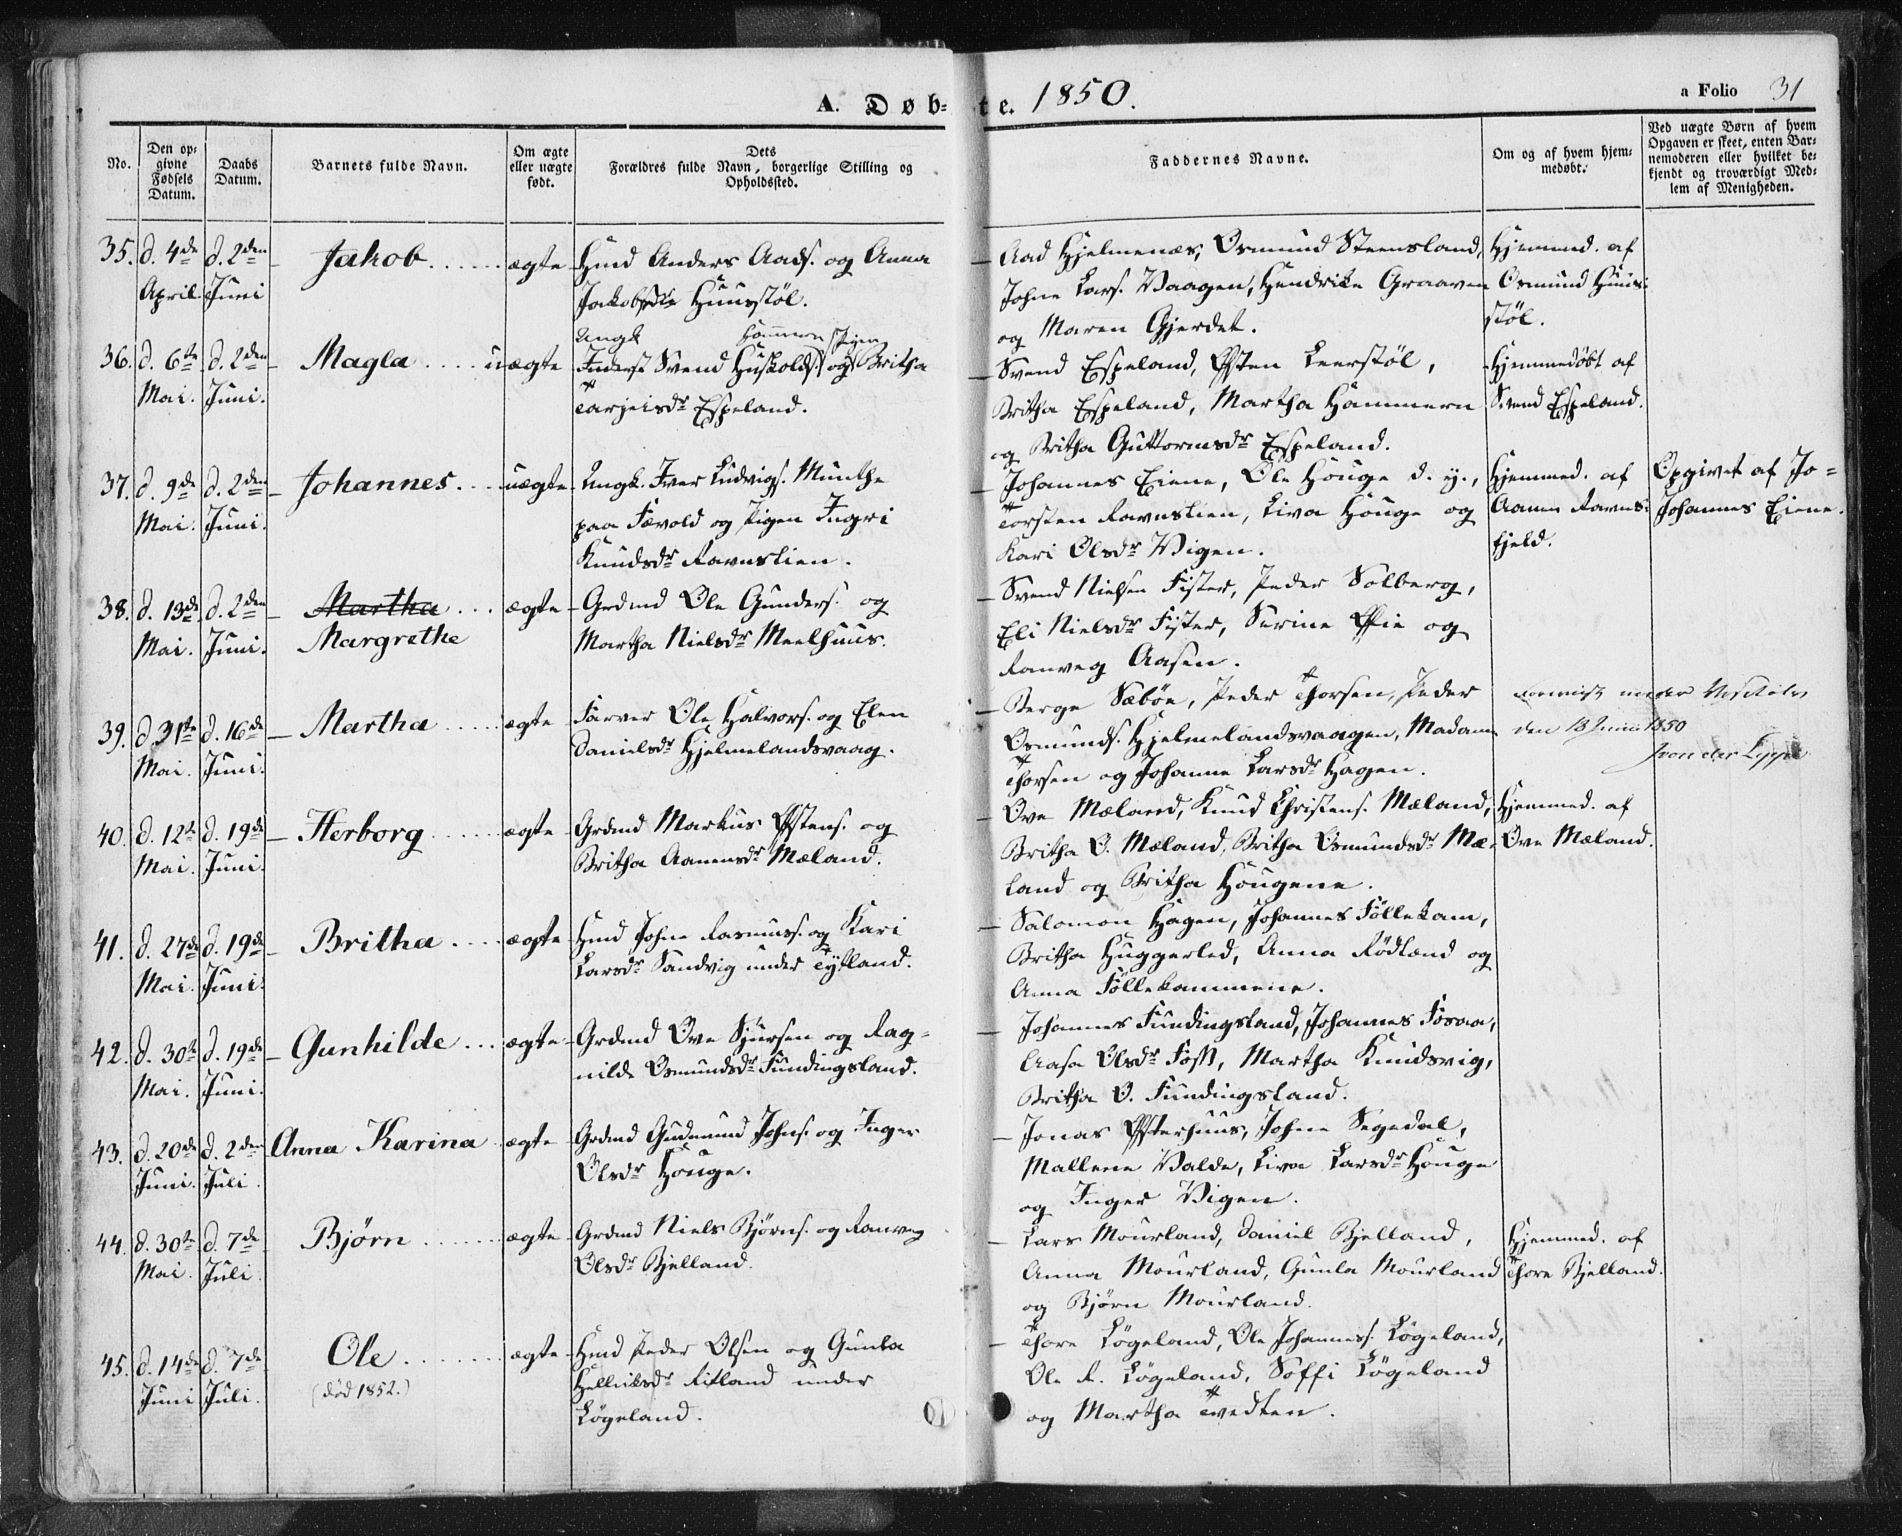 A. Døb-te. 1850.
a Folio 31
No.
Den opgivne Fødsels Datum.
Daabs Datum.
Barnets fulde Navn.
Om ægte eller uægte født.
Dets Forældres fulde Navn, borgerlige Stilling og Opholdssted.
Faddernes Navne.
Om og af hvem hjemmedøbt.
Ved uægte Børn af hvem Opgaven er skeet, enten Barnemoderen eller hvilket bekjendt og troværdigt Medlem af Menigheden.
35. d. 4de April. d. 2den Juni Jakob ægte
Hmd Anders Aads. og Anna
Jakobsdr Huusstøl.
Aad Hjelmenæs, Osmund Steensland,
Johne Lars. Vaagen, Hendrike Graaven
og Maren Gjerdet.
Hjemmed. af
Osmund Huus-
støl.
36. d. 6te Mai. d. 2den Juni. Magla uægte
Ungk Hammeren Pigen
Inderst Svend Huskolds. og Britha
Tarjeisdr Espeland.
Svend Espeland, Østen Leerstøl,
Britha Espeland, Martha Hammern
og Britha Guttormsdr Espeland.
Hjemmedøbt af
Svend Espeland.
37. d. 9de Mai. d. 2den Juni. Johannes uægte
Ungk. Iver Ludvigs. Munthe
paa Fævold og Pigen Ingri
Knudsdr Ravnslien.
Johannes Eiene, Ole Houge d. y.,
Torsten Ravnslien, Liva Houge og
Kari Olsdr Vigen.
Hjemmed. af
Aanen Ravns-
fjeld.
Opgivet af Jo-
Johannes Eiene.
38. d. 13de Mai. d. 2den Juni. Martha
Margrethe ægte
Grdmd Ole Gunders. og
Martha Nielsdr Meelhuus.
Svend Nielsen Fister, Peder Solberg,
Eli Nielsdr Fister, Serine Øie og
Ranveg Aasen.
39. d 31te Mai. d. 16de Juni. Martha ægte
Farver Ole Halvors. og Elen
Danielsdr Hjelmelandsvaag.
Berge Sæbøe, Peder Thorsen, Peder
Osmunds. Hjelmelandsvaagen, Madame
Thorsen og Johanne Larsdr Hagen.
den 18 Juni 1850
von der Lippe
40. d. 12te Mai. d. 19de Juni. Herborg ægte
Grdmd Markus Østens. og
Britha Aanensdr Mæland.
Ove Mæland, Knud Christens. Mæland,
Britha O. Mæland, Britha Osmundsdr Mæ-
land og Britha Hougene.
Hjemmed. af
Ove Mæland.
41. d. 27de Mai. d. 19de Juni. Britha ægte
Hmd Johne Rasmuss. og Kari
Larsdr Sandvig under Tytland.
Salomon Hagen, Johannes Føllekam,
Britha Huggerled, Anna Rødland og
Anna Føllekammene.
42. d. 30te Mai. d. 19de Juni. Gunhilde ægte
Grdmd Ove Sjursen og Rag-
nilde Osmundsdr Fundingsland.
Johannes Fundingsland, Johannes Fosaa,
Aasa Olsdr Foss, Martha Knudsvig,
Britha O. Fundingsland.
43. d. 20de Juni. d. 2den Juli. Anna Karina ægte
Grdmd Gudmund Johns. og Inger
Olsdr Houge.
Jonas Østerhuus, Johne Segedal,
Mallene Valde, Liva Larsdr Houge
og Inger Vigen.
44. d. 30te Mai. d. 7de Juli. Bjørn ægte
Grdmd Niels Bjørns. og Ranveg
Olsdr Bjelland.
Lars Mourland, Daniel Bjelland,
Anna Mourland, Gunla Mourland
og Bjørn Mourland.
Hjemmed. af
Thore Bjelland.
45. d. 14de Juni d. 7de Juli. Ole
(død 1852.) ægte
Hmd Peder Olsen og Gunla
Helliksdr Ritland under
Løgeland.
Thore Løgeland, Ole Johanness. Løgeland,
Ole R. Løgeland, Soffi Løgeland
og Martha Tvedten.